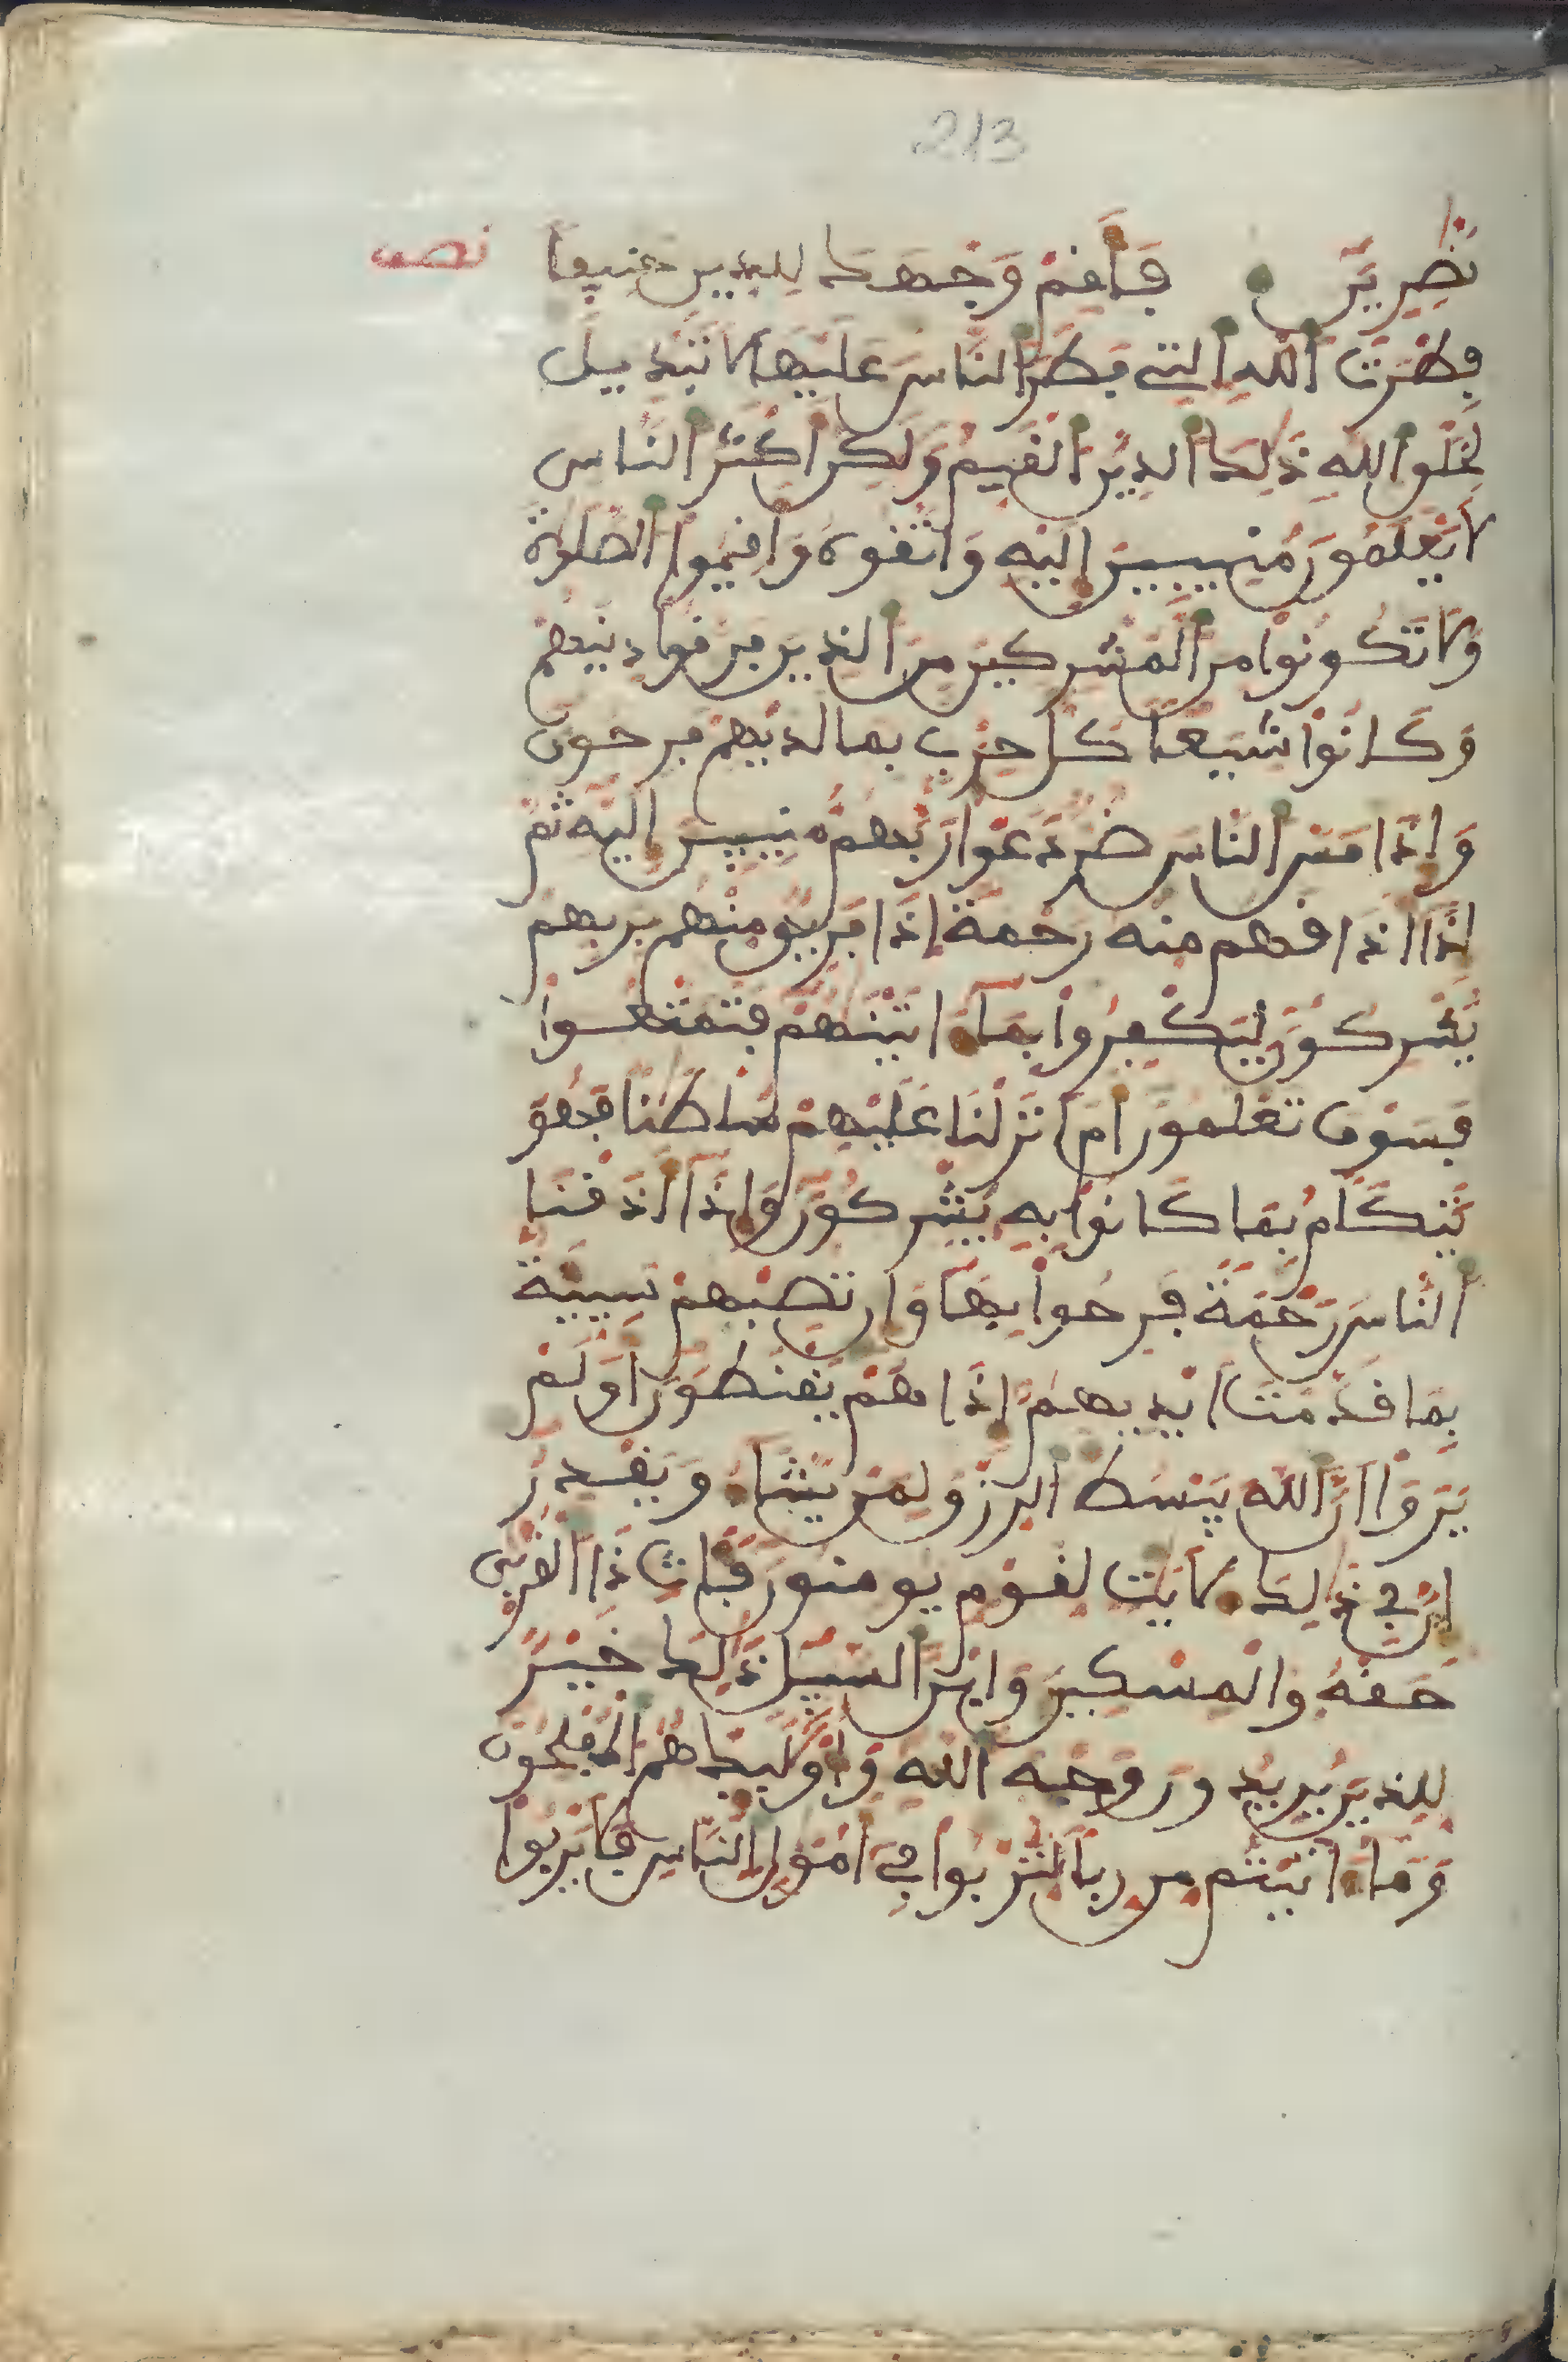 213
نصف
نصرين فأقم وجهك للدين حنيفا
فطرت الله التي فطر الناس عليها لا تبديل
لخلق الله ذلك الدين القيم ولكن أكثر الناس
لا يعلمون منيبين إليه واتقوه وأقيموا الصلوة
ولا تكونوا من المشركين من الذين فرقوا دينهم
وكانوا شيعا كل حزب بما لديهم فرحون
وإذا مس الناس ضر دعوا ربهم منيبين إليه ثم
إذا أذاقهم منه رحمة إذا فريق منهم بربهم
يشركون ليكفروا بما ءاتينهم فتمتعوا
فسوف تعلمون أم أنزلنا عليهم سلطنا فهو
يتكلم بما كانوا به يشركون وإذا أذقنا
الناس رحمة فرحوا بها وإن تصبهم سيية
بما قدمت أيديهم إذا هم يقنطون أولم
يروا أن الله يبسط الرزق لمن يشاء ويقدر
إن في ذلك لأيت لقوم يومنون فئات ذا القربى
حقه والمسكين وابن السبيل ذلك خير
للذين يريدون وجه الله وأوليك هم المفلحون
وما ءاتيتم من ربا لتربوا في أمول الناس فلا يربوا